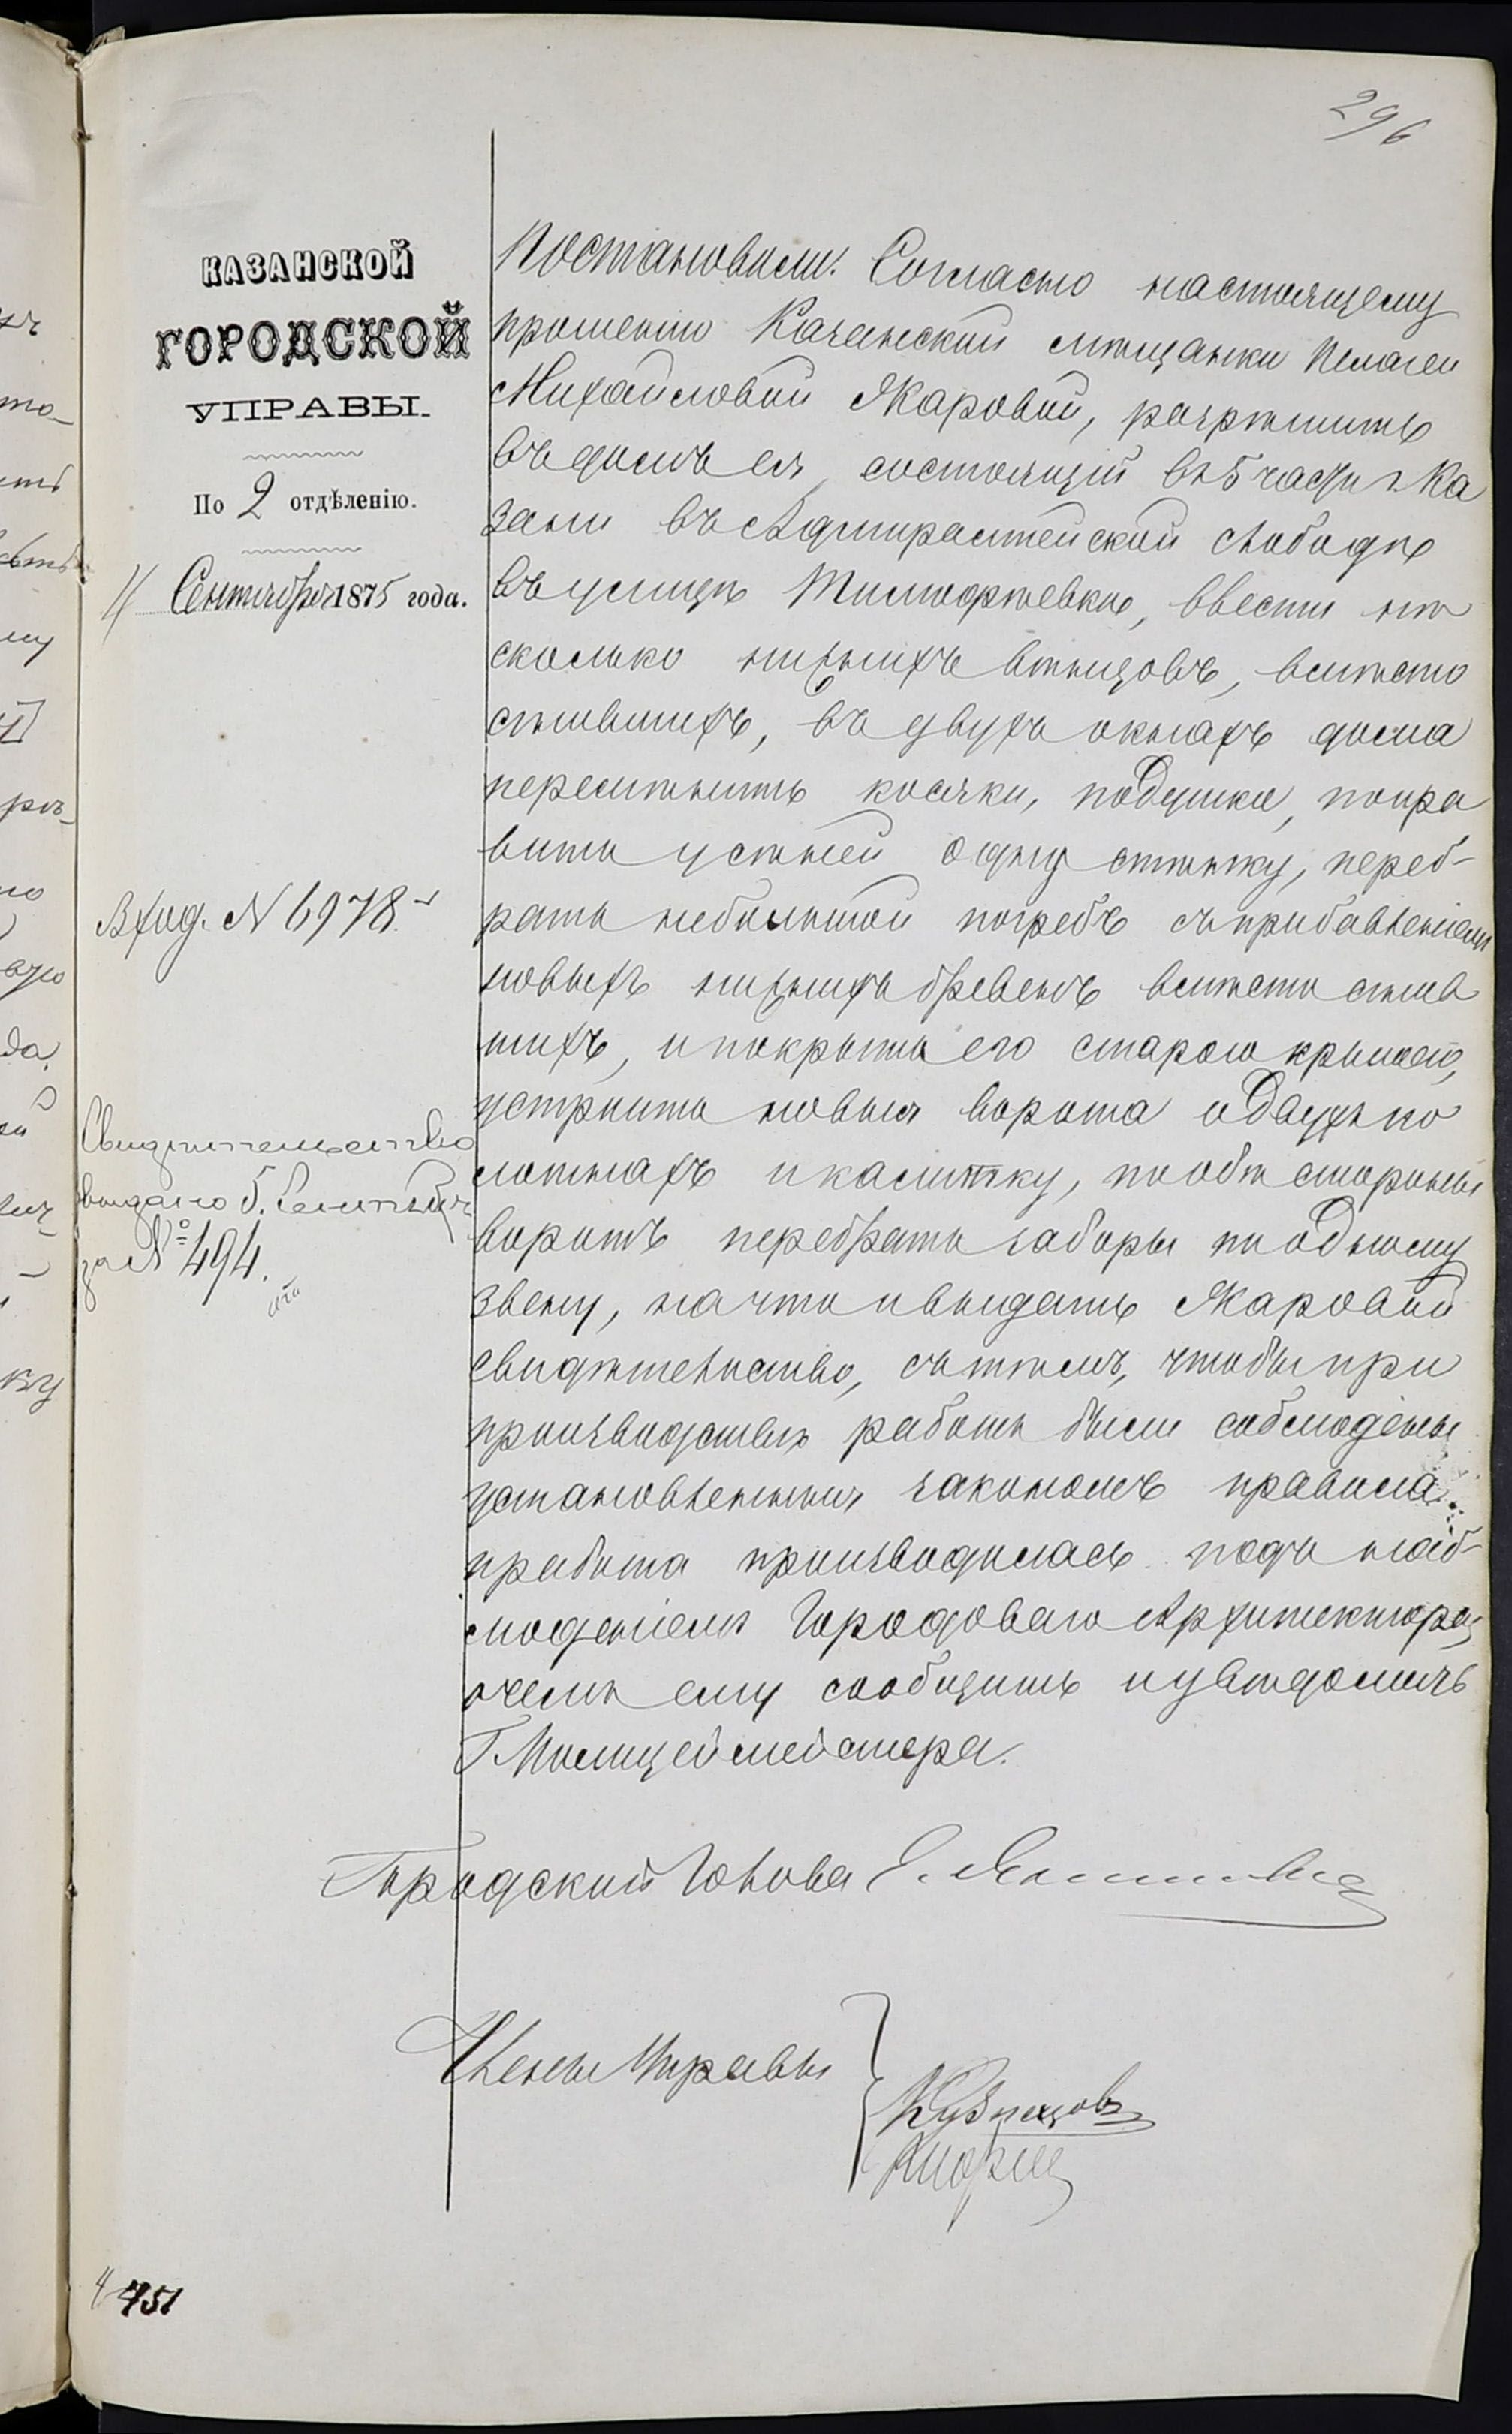 296
КАЗАНСКОЙ
ГОРОДСКОЙ
УПРАВЫ.
По 2 отдѣленію.
4 Сентября 1875 года.
Вход. N 6978.
Свидѣтельство
выдано 5. Сентября
за № 494.
Постановили: Согласно настоящему
прошенію Казанской мѣщанки Пелагеи
Михайловой Жаровой, разрѣшить
въ домѣ ея, состоящій въ 5 части г. Ка
зани въ Адмиралтейской слободѣ
въ улицѣ Тимофѣевкѣ, ввести нѣ
сколько нижнихъ вѣнцовъ, вмѣсто
сгнившихъ, въ двухъ окнахъ дома
перемѣнить косяки, подушки, попра
вить у сѣней одну стѣнку, переб-
рать небольшой погребъ съ прибавленіемъ
новыхъ нижнихъ бревенъ вмѣсто сгнив
шихъ, и покрыть его старою крышею,
устроить новыя ворота о двухъ по
лотнахъ и калитку, по обѣ стороны
воротъ перебрать заборы по одному
звену, на что и выдать Жаровой
свидѣтельство, съ тѣмъ, чтобы при
производствѣ работъ были соблюдены
установленныя закономъ правила
и работа производилась подъ наб-
люденіемъ Городоваго Архитектора,
о чемъ ему сообщить и увѣдомить
Г. Полицеймейстера.
Городской Голова
Члены Управы
Кузнецовъ
4451